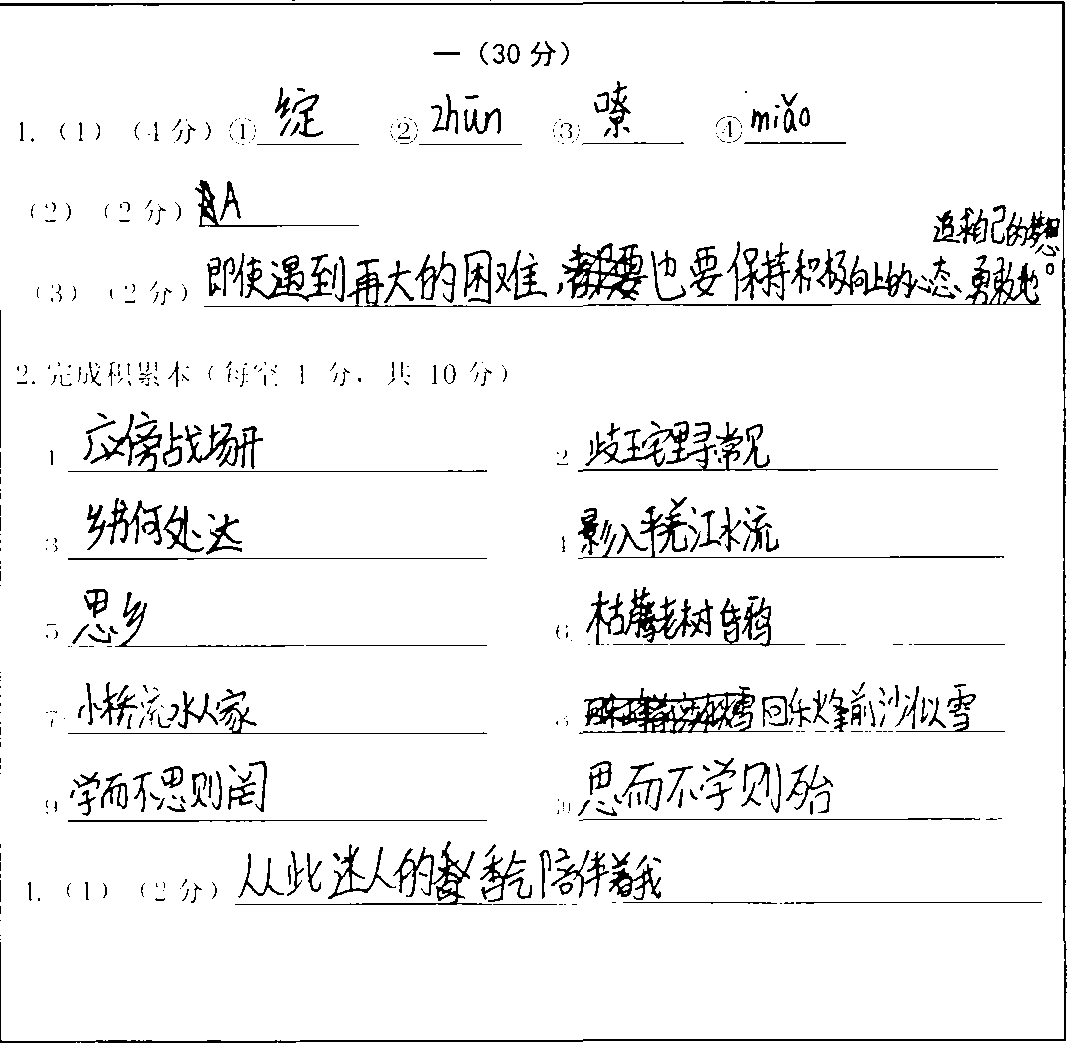 一（30分）
1.（1）（4分）①绽 ②zhūn ③嘹 ④miǎo
（2）（2分）A
追求自己的梦想。
（3）（2分）即使遇到再大的困难，也要保持积极向上的心态，勇敢地
2.完成积累本（每空1分，共10分）
1 应傍战场开 2 歧王宅里寻常见
3 乡书何处达 4 影入平羌江水流
5 思乡 6 枯藤老树昏鸦
7 小桥流水人家 8 回乐烽前沙似雪
9 学而不思则罔 10 思而不学则殆
1.（1）（2分）从此迷人的香气陪伴着我